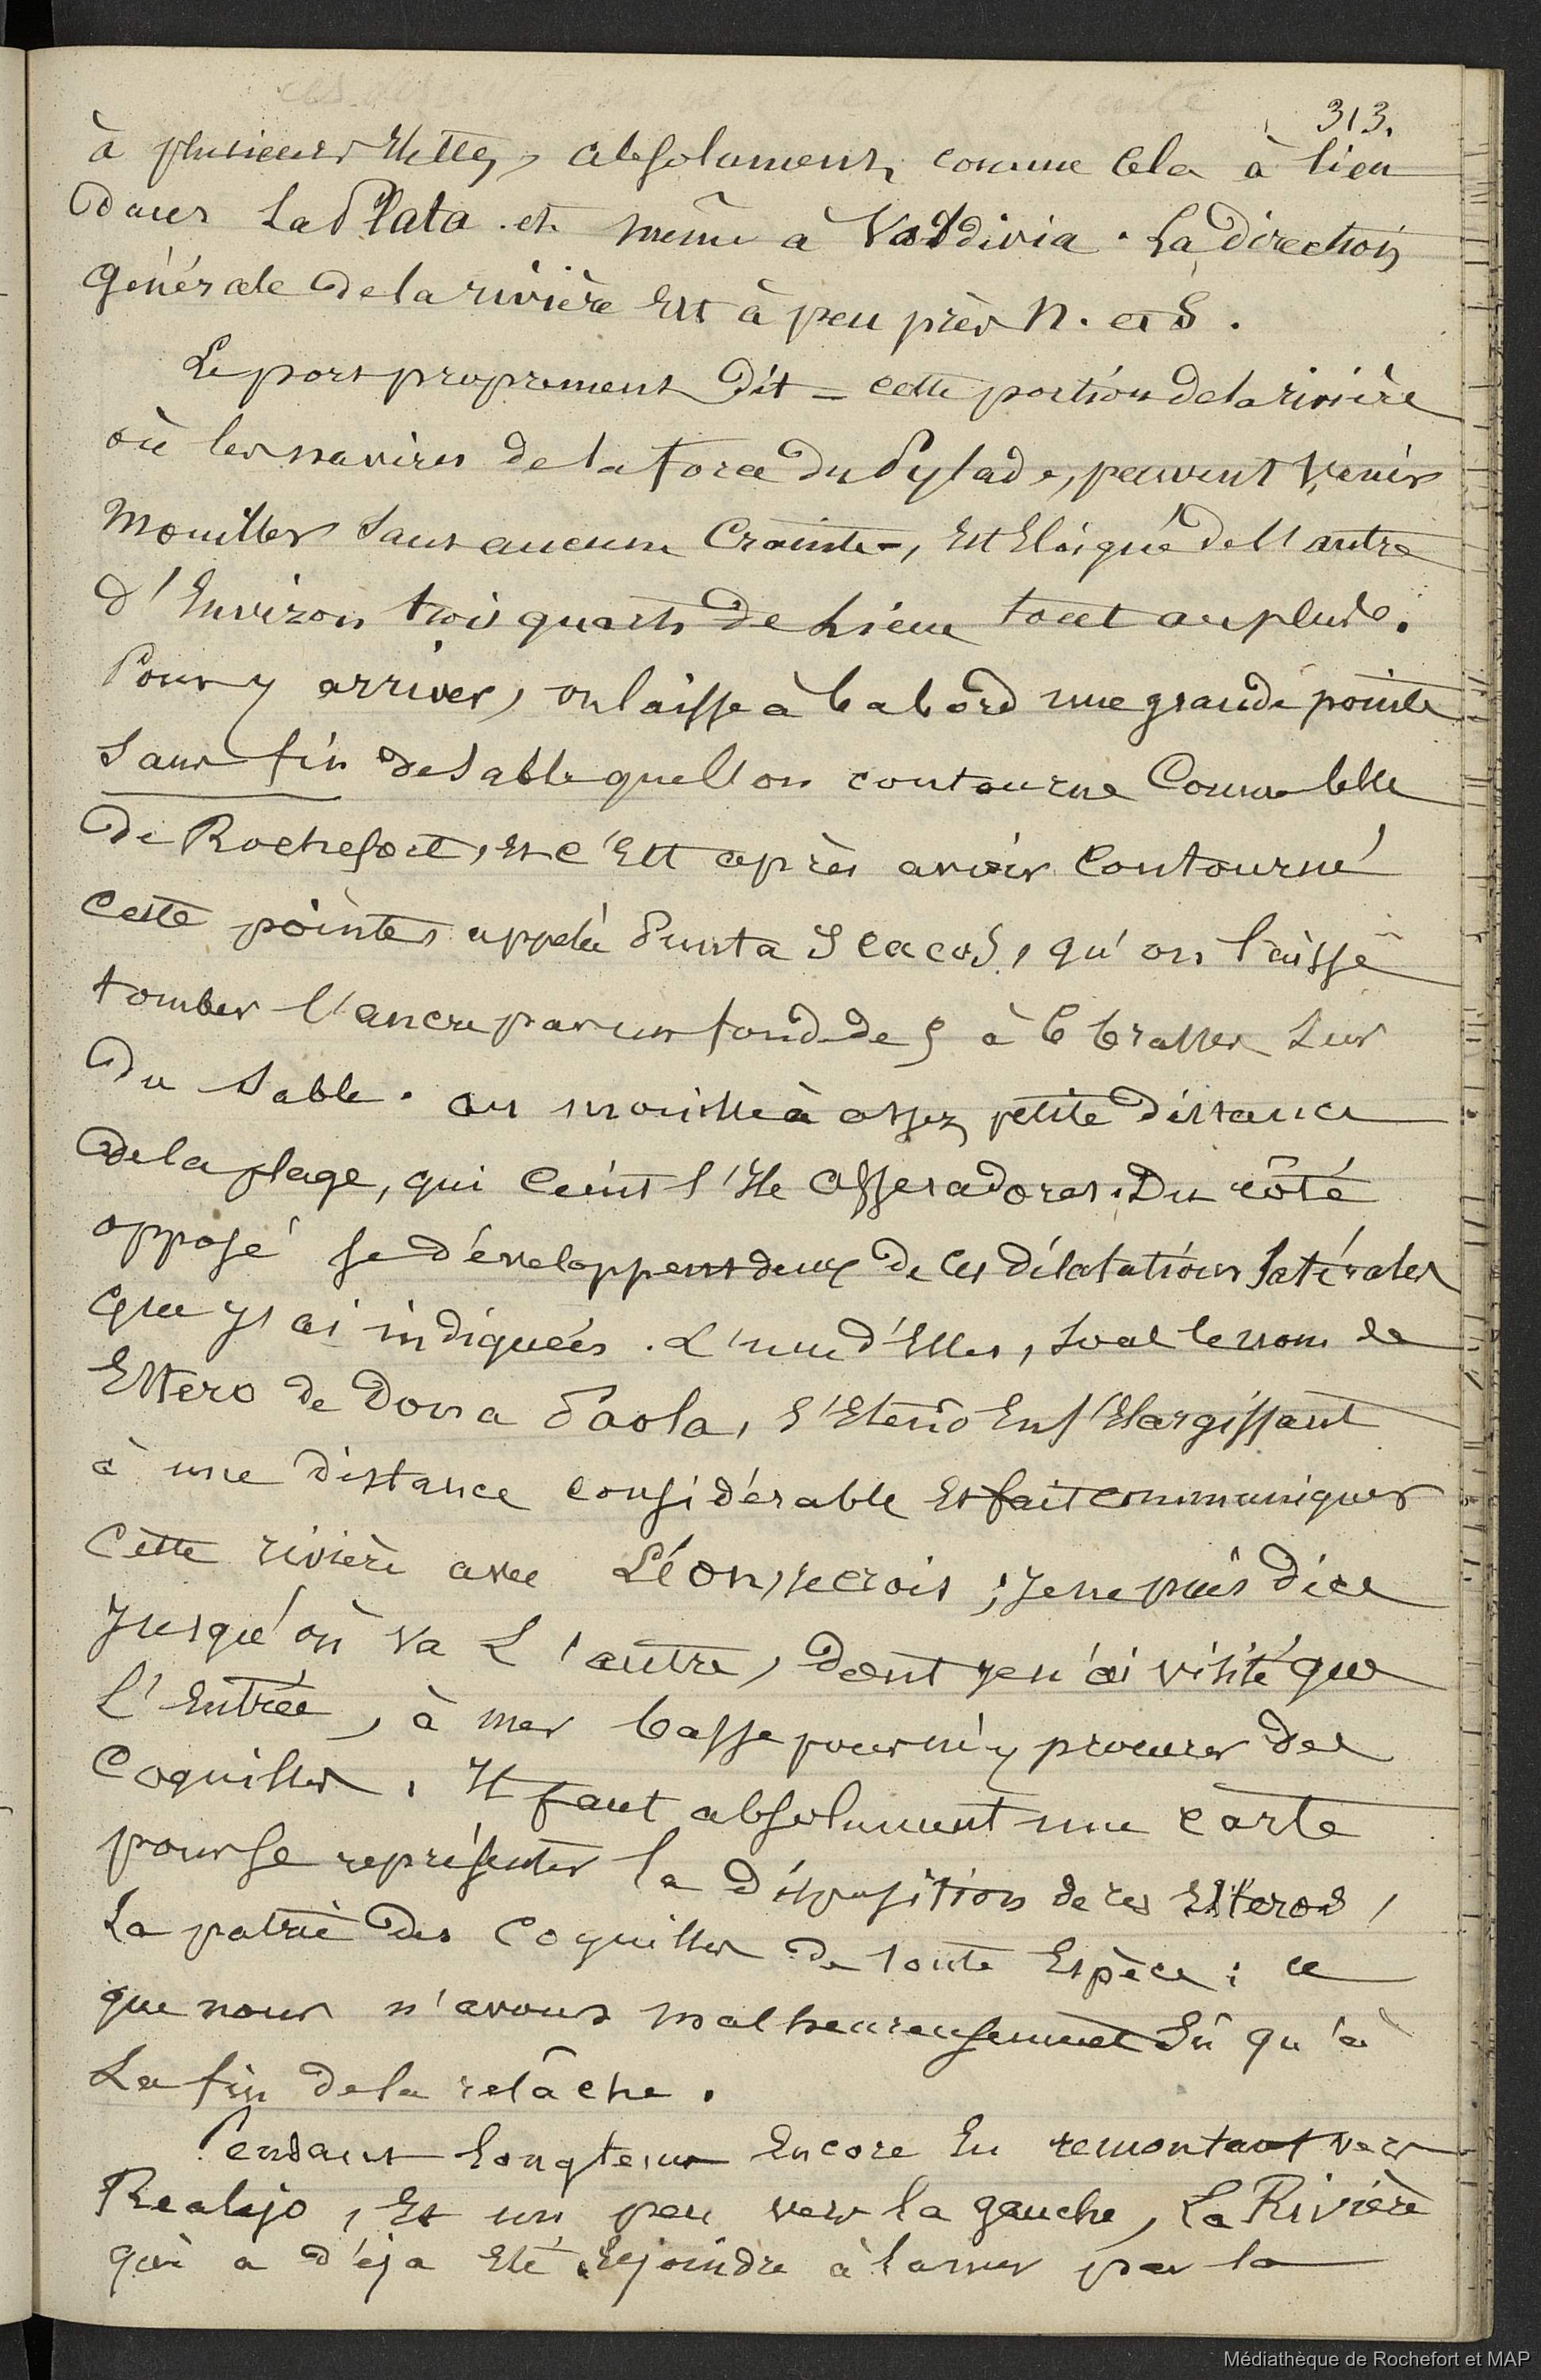 313.
à plusieurs Milles, absolument comme Cela à lieu
dans La Plata et même à Valdivia. La direction
Générale de la rivière Est à peu près N. et S.
Le port proprement Dit = cette portion de la rivière
où les navires de la force du Pylade, peuvent Venir
Mouiller Sans aucune Crainte, Est Eloigné de l'autre
d'Environ trois quarts de Lieue tout au plus.
Pour y arriver, on laisse à babord une grande pointe
Sans fin de Sable que l'on contourne Comme Celle
de Rochefort, Et c'Est après avoir Contourné
Cette pointe, appelée Punta Icacos, qu'on laisse
tomber l'ancre par un fond de 5 à 6 brasses Sur
Du Sable. On mouille à assez petite distance
de la plage, qui Ceint l'Ile Asseradores. Du côté
opposé se développent deux de ces dilatations latérales
que j'ai indiquées. L'une d'Elles, sous le nom de
Estero de Dona Paola, s'Etend En s'Elargissant
à une distance considérable Et fait communiquer
Cette rivière avec Léon, je crois ; je ne puis dire
Jusqu'où va L'autre, dont je n'ai visité que
L'Entrée, à mer basse pour m'y procurer des
Coquilles. Il faut absolument une carte
pour se représenter la disposition de ces Esteros,
La patrie des Coquilles de toute Espèce : ce
que nous n'avons malheureusement Sû qu'à
La fin de la relâche.
Pendant Longtems Encore En remontant vers
Realejo, Et un peu vers la gauche, La Rivière
qui a déja Eté Rejoindre à la mer par la
Médiathèque de Rochefort et MAP